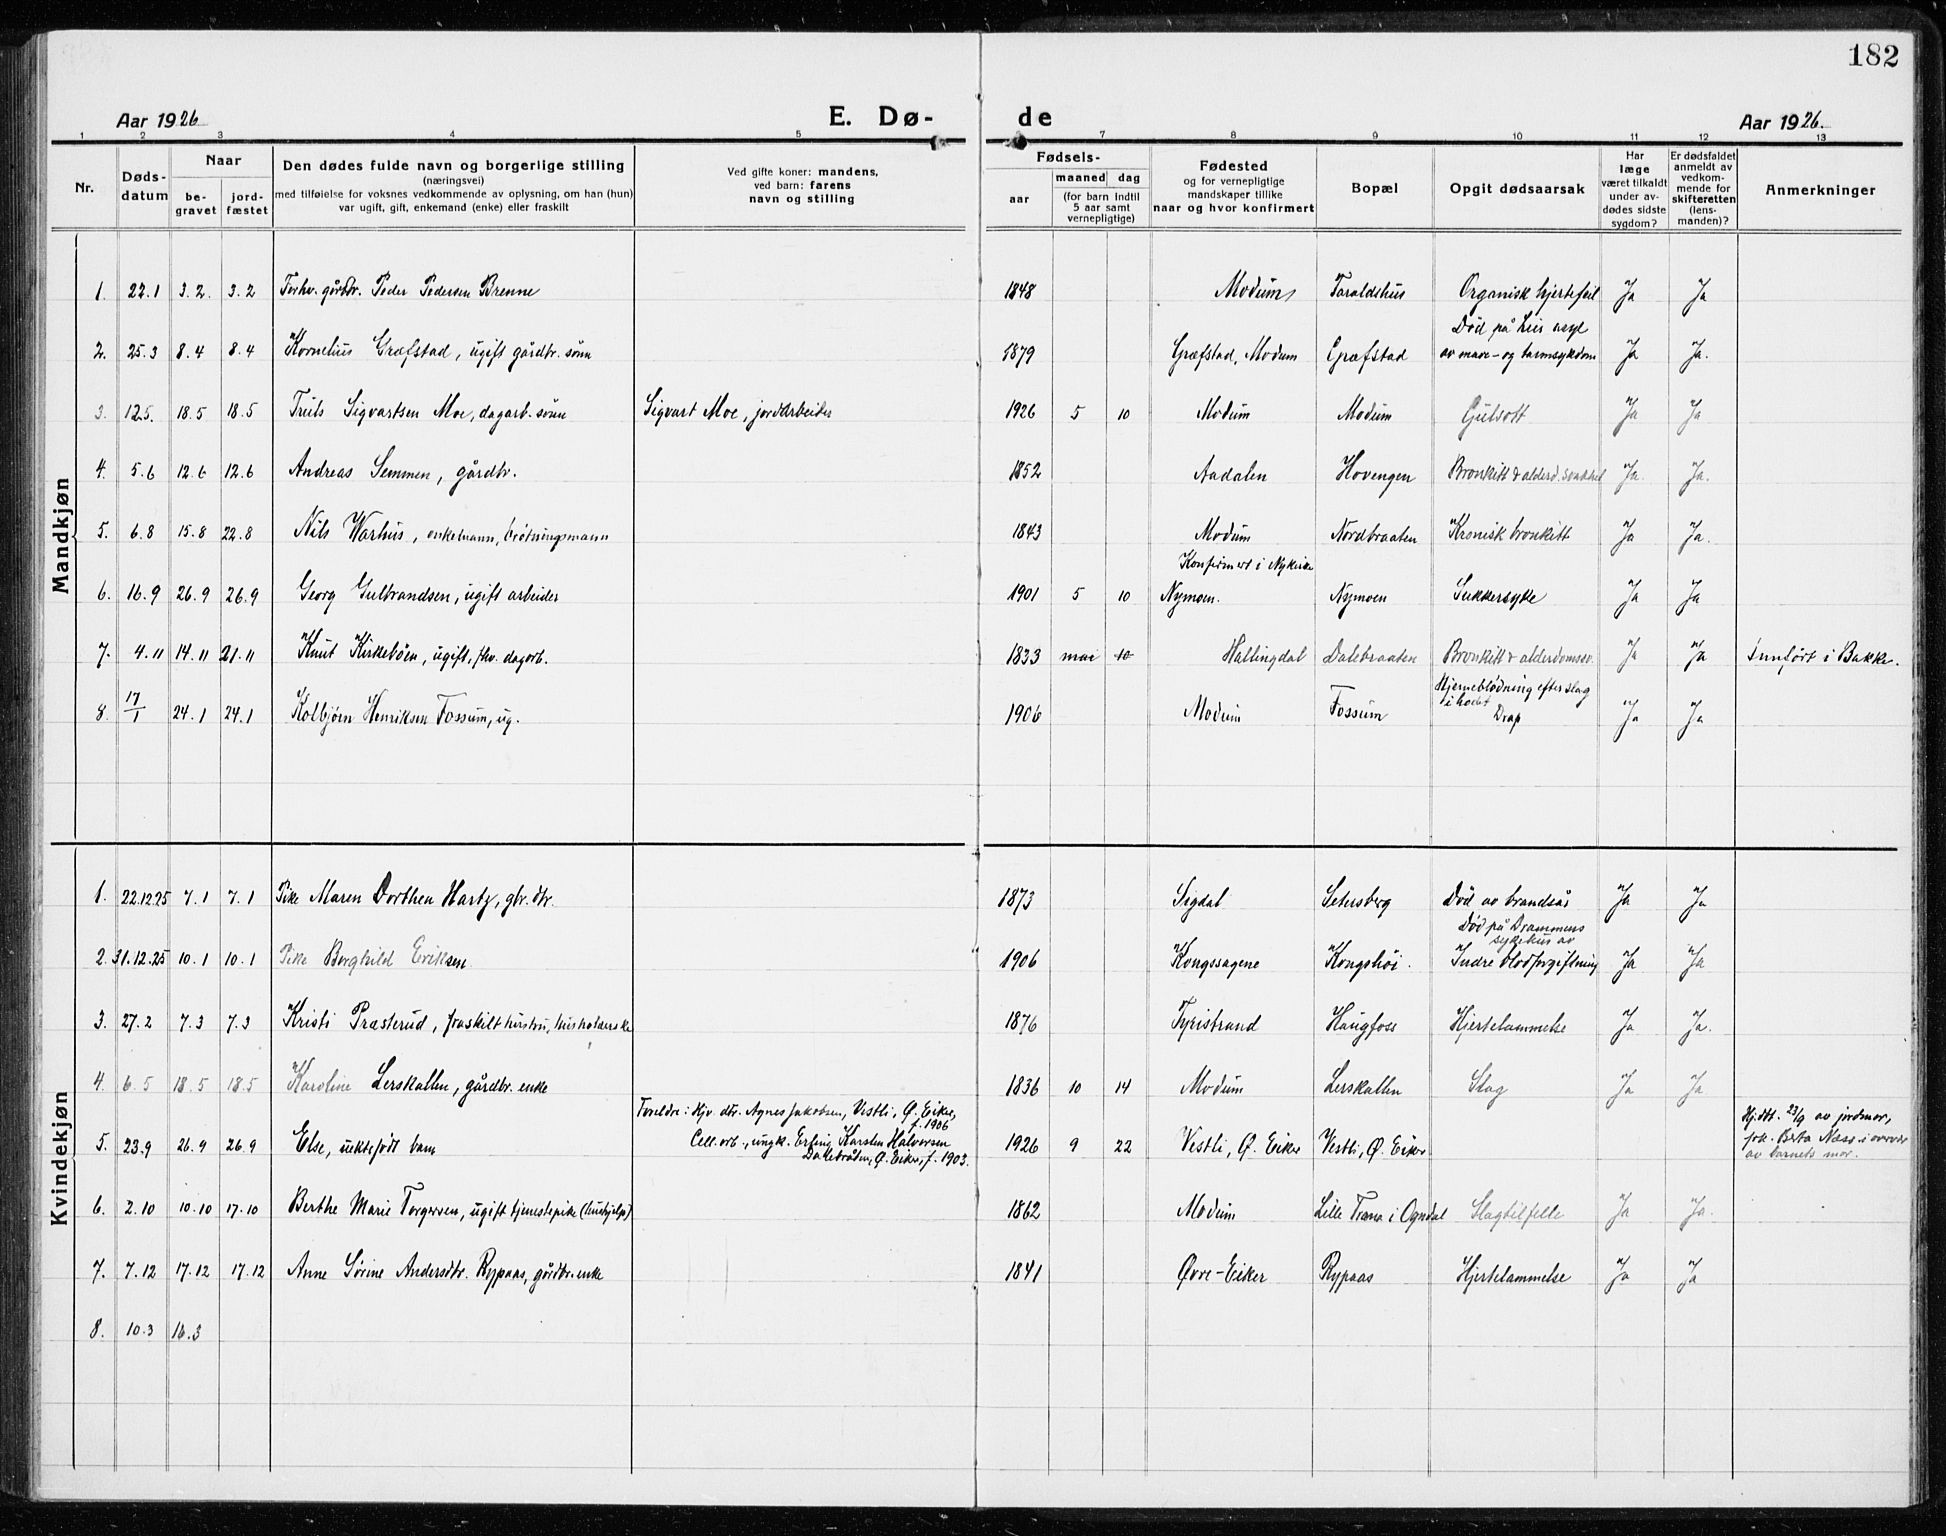 182
Aar 1926
E. Dø-
de
Aar 1926.
1 2 3 4 5 7 8 9 10 11 12 13
Nr.
Døds-
datum
Naar
be-
gravet
jord-
fæstet
Den dødes fulde navn og borgerlige stilling
(næringsvei)
med tilføielse for voksnes vedkommende av oplysning, om han (hun)
var ugift, gift, enkemand (enke) eller fraskilt
Ved gifte koner: mandens,
ved barn: farens
navn og stilling
Fødsels-
aar
maaned dag
(for barn indtil
5 aar samt
vernepligtige)
Fødested
og for vernepligtige
mandskaper tillike
naar og hvor konfirmert
Bopæl
Opgit dødsaarsak
Har
læge
været tilkaldt
under av-
dødes sidste
sygdom?
Er dødsfaldet
anmeldt av
vedkom-
mende for
skifteretten
(lens-
manden)?
Anmerkninger
Mandkjøn
1. 22.1 3.2. 3.2 Forhv. gårdbr. Peder Pedersen Brenne 1848 Modum Taraldshus Organisk hjertefeil Ja Ja
Død på Lier asyl
2. 25.3 8.4 8.4 Kornelius Græfstad, ugift gårdbr. sønn 1879 Græfstad, Modum Græfstad av mave- og tarmsykdom Ja Ja.
3. 12.5. 18.5 18.5 Truls Sigvartsen Moe, dagarb. sønn Sigvart Moe, jordarbeider 1926 5 10 Modum Modum Gulsott Ja Ja
4. 5.6 12.6 12.6 Andreas Semmen, gårdbr. 1852 Aadalen Hovengen Bronkitt & alderd. svakhet Ja. Ja.
5. 6.8 15.8 22.8 Nils Warhus, enkemann, brøtningsmann 1843 Modum Nordbraaten Kronisk bronkitt Ja Ja.
Konfirmert i Nykirke
6. 16.9 26.9 26.9 Georg Gulbrandsen, ugift arbeider 1901 5 10 Nymoen. Nymoen Sukkersyke Ja Ja
7. 4.11 14.11 21.11 Knut Kirkebøen, ugift, fhv. dagarb. 1833 mai 10 Hallingdal Dalebraaten Bronkitt & alderdomssv. Ja Ja Innført i Bakke.
Hjerneblødning efter slag
i hodet
8. 17/1 24.1 24.1 Kolbjørn Henriksen Fossum, ug. 1906 Modum Fossum Drap Ja Ja
Kvindekjøn
1. 22.12.25 7.1 7.1 Pike Maren Dorthea Hartz, gbr. dtr. 1873 Sigdal Setersberg Død av brandsår Ja Ja
Død på Drammens
sykehus av
2. 31.12.25 10.1 10.1 Pike Borghild Eriksen 1906 Kongssagene Kongshøi. Indre blodforgiftning Ja Ja
3. 27.2 7.3 7.3 Kristi Præsterud, fraskilt hustru, husholderske 1876 Tyristrand Haugfoss Hjertelammelse Ja Ja.
4. 6.5 18.5 18.5 Karoline Lerskallen, gårdbr. enke 1836 10 14 Modum Lerskallen Slag Ja Ja
Foreldre: Hjv. dtr. Agnes Jakobsen, Vestli, Ø. Eiker,
f. 1906
Cell. arb., ungk. Erling Karsten Halvorsen
Dalebråten, Ø. Eiker, f. 1903.
5. 23.9 26.9 26.9 Else, uektefødt barn 1926 9 22 Vestli, Ø. Eiker Vestli, Ø. Eiker
Hj.døt. 23/9 av jordmor,
frk. Berta Næss i overvær
av barnets mor.
6. 2.10 10.10 17.10 Berthe Marie Torgersen, ugift tjenestepike (hushjelp) 1862 Modum Lille Trana i Ogndal Slagtilfelle Ja Ja.
7. 7.12 17.12 17.12 Anne Sørine Andersdtr. Rypaas, gårdbr. enke 1841 Øvre-Eiker Rypaas Hjertelammelse Ja Ja
8. 10.3 16.3